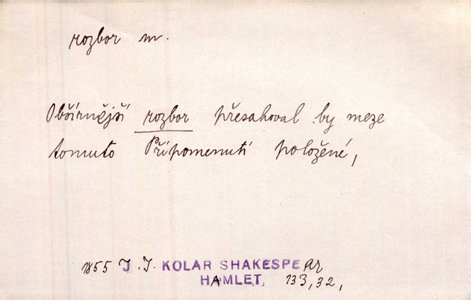 rozbor m.
Obšírnější rozbor přesahoval by meze
tomuto Připomenutí položené,
1855 J. J. KOLAR SHAKESPEar
HAMLET, 133, 32,